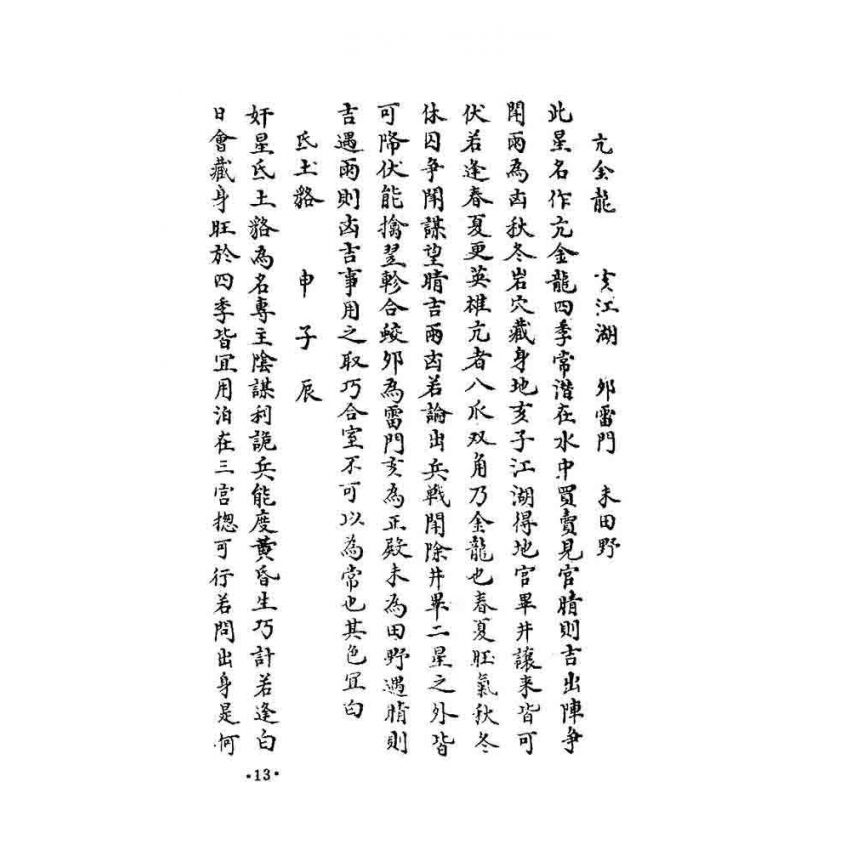 亢金龍 亥江湖 夘雷門 未田野
此星名作亢金龍四季常潜在水中買賣見官晴則吉出陣争
閗雨為凶秋冬岩穴藏身地亥子江湖得地官畢井讓来皆可
伏若逢春夏更英雄亢者八爪双角乃金龍也春夏旺氣秋冬
休囚争閗謀望晴吉雨凶若論出兵戦閗除井畢二星之外皆
可降伏能擒翌軫合蛟夘為雷門亥為正殿未為田野遇晴則
吉遇雨則凶吉事用之取巧合室不可以為常也其色宜白
氐土貉 申子辰
奸星氐土貉為名專主陰謀利詭兵能度黄昏生巧計若逢白
日會藏身旺於四季皆宜用泊在三宫揔可行若問出身是何
·13·